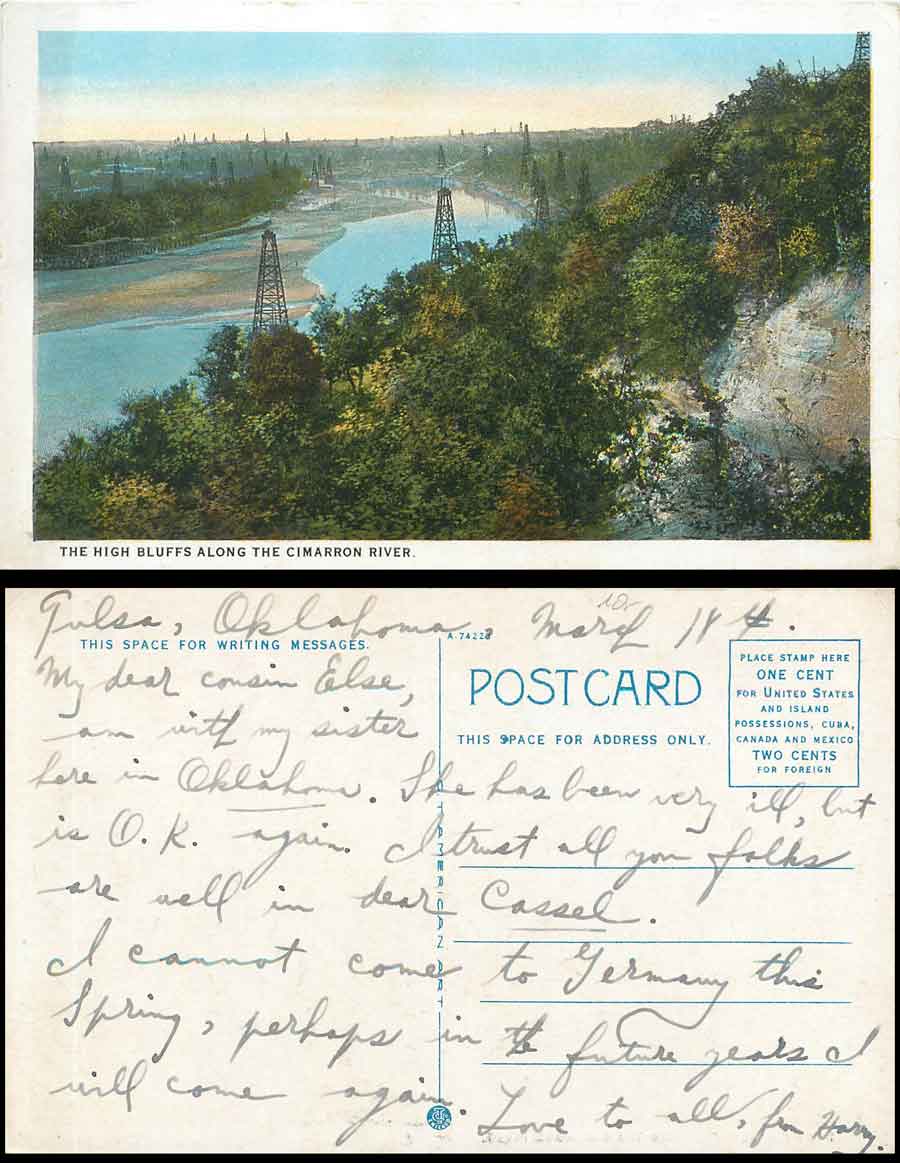 THE HIGH BLUFFS ALONG THE CIMARRON RIVER.
10.-
Tulsa, Oklahoma, March 18
THIS SPACE FOR WRITING MESSAGES.
A-74228
POST CARD
THIS SPACE FOR ADDRESS ONLY.
PLACE STAMP HERE
ONE CENT
FOR UNITED STATES
AND ISLAND
POSSESSIONS, CUBA,
CANADA AND MEXICO
TWO CENTS
FOR FOREIGN
My dear cousin Else,
am with my sister
here in Oklahoma. She has been very ill, but
is O.K. again. I trust all you folks
are well in dear Cassel.
I cannot come to Germany this
Spring, perhaps in the future years I
will come again.
Love to all, from Harry.